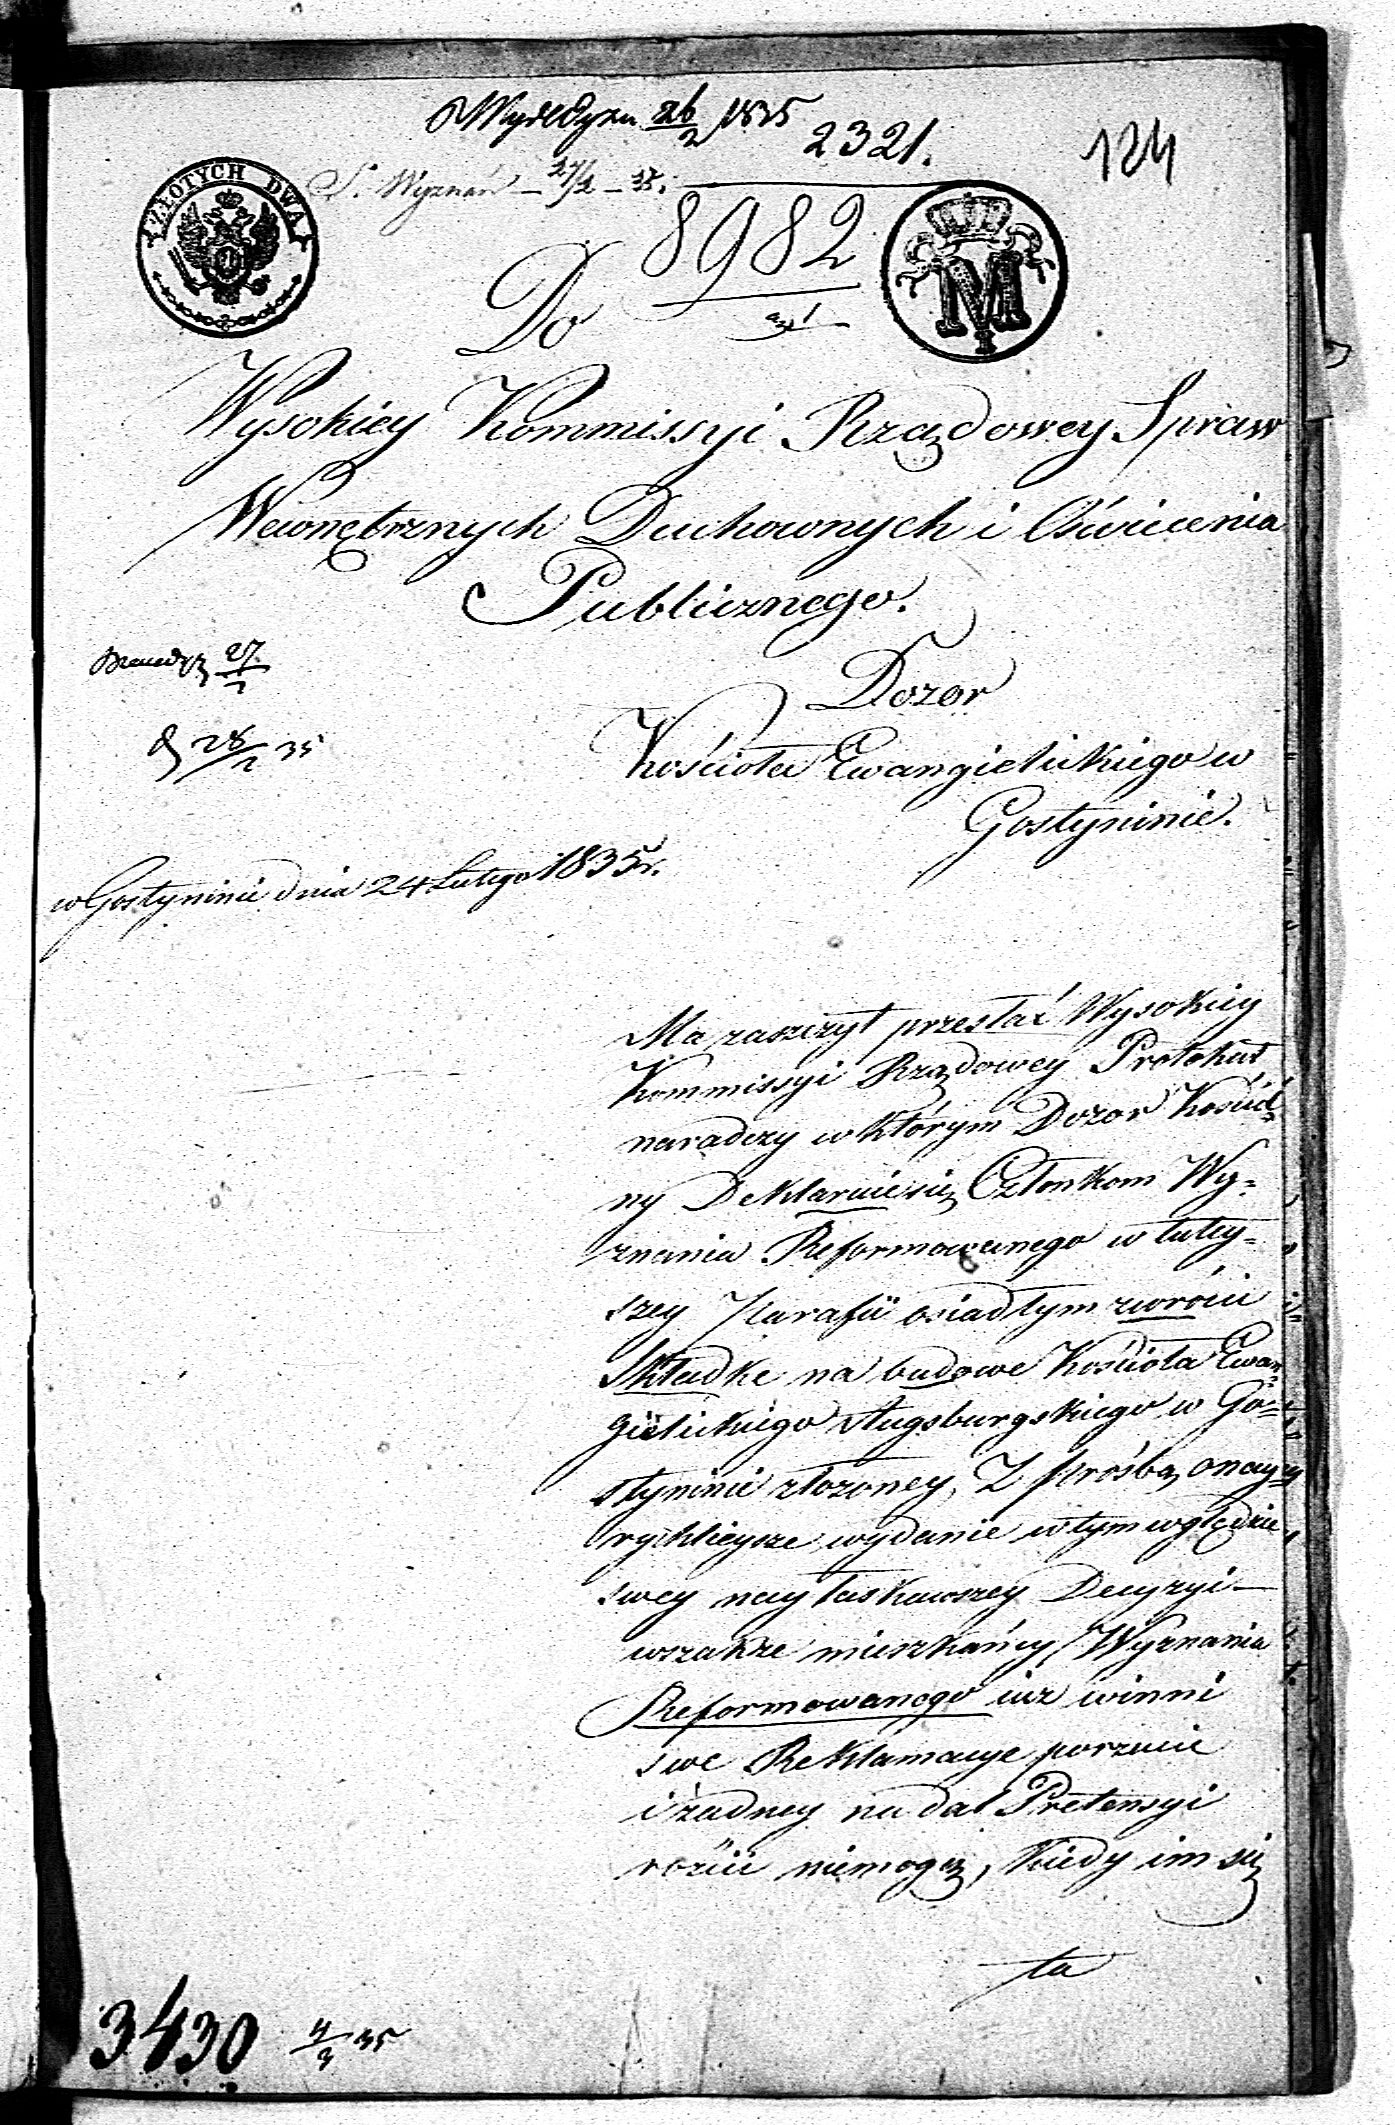 26/2 1835
2321.
124
ZŁOTYCH DWA
S. Wyznań – 27/2 – 35.
8982
M
Do
Wysokiey Kommissyi Rządowey Spraw
Wewnętrznych Duchownych i Oświecenia
Publicznego.
27/2
28/2 35
Dozor
Kościoła Ewangielickiego w
Gostyninie.
w Gostyninie dnia 24 Lutego 1835 r.
Ma zaszczyt przesłać Wysokiey
Kommissyi Rządowey Protokuł
naradczy w którym Dozor Kościel
ny Deklaruie się Członkom Wy=
znania Reformowanego w tutey=
szey Parafii osiadłym zwrócić
Składkę na budowe Kościoła Ewan=
gielickiego Augsburgskiego w Go=
styninie złozoney, Z prośbą o nay=
rychleysze wydanie w tym względzie
swey nayłaskawszey Decyzyi –
wszakze mieszkańcy Wyznania
Reformowanego iuz winni
swe Reklamacye porzucić
i żadney nadal Pretensyi
rościć niemogą, Kiedy im się
ta
3430 4/3 35